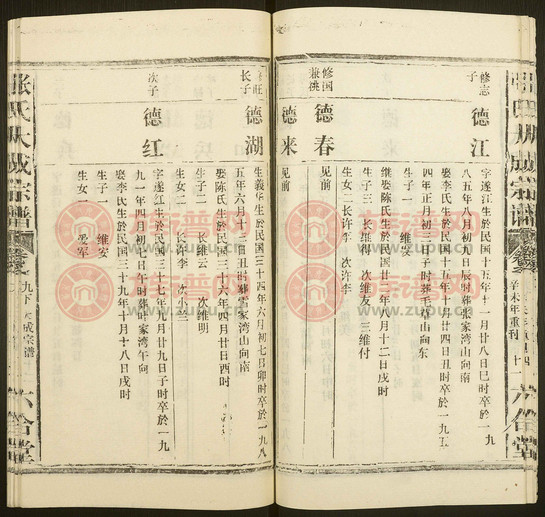 修志
子
德江
字遂江生於民国十五年十一月廿八日巳时卒於一九
八五年八月初九日辰时葬张家湾山向南
娶李氏生於民国十五年十一月廿四日丑时卒於一九五
四年正月初三日子时葬毛草山向东
生子一 维安
继娶陈氏生於民国廿三年八月十二日戌时
生子三 长维得 次维友 三维付
生女二 长许李 次许李
修国
兼祧
德春
见前
德来
见前
长子
德湖
字义华生於民国三十四年六月初七日卯时卒於一九八
五年六月十二日丑时葬雷家湾山向南
娶陈氏生於民国三十年四月廿日酉时
生子二 长维云 次维明
生女二 长许李 次小兰
次子
德红
字遂红生於民国三十七年九月廿九日子时卒於一九
九一年四月初七日午时葬叶家湾午向
娶李氏生於民国三十九年十月十八日戌时
生子一 维安
生女一 爱军
张氏大成宗谱
九下
大成宗谱
六合堂
辛未年重刊
六合堂
宗谱网
www.zupu.cn